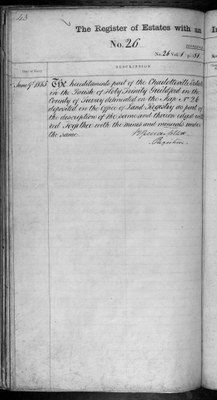 43
The Register of Estates with an I
No. 26
No. 26 Vol. 1 p. 51
DESCRIPTION
Date of Entry
June 9th 1865 The hereditaments part of the Charlotteville Estate
in the Parish of Holy Trinity Guildford in the
County of Surrey delineated on the Map No 26
deposited in the Office of Land Registry as part of
the description of the same and thereon edged with
red Together with the mines and minerals under
the same.
Registrar